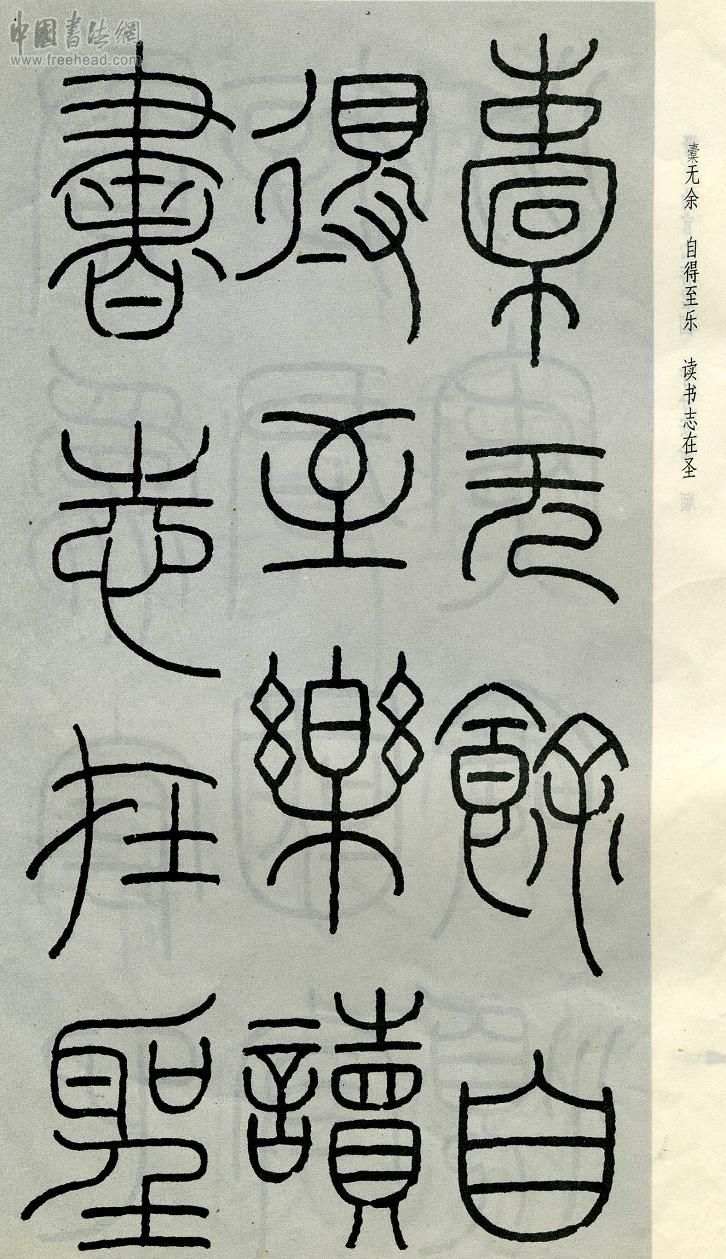 中國書法網
www.freehead.com
橐无余 自得至乐 读书志在圣
橐无餘自
得至樂讀
書志在聖